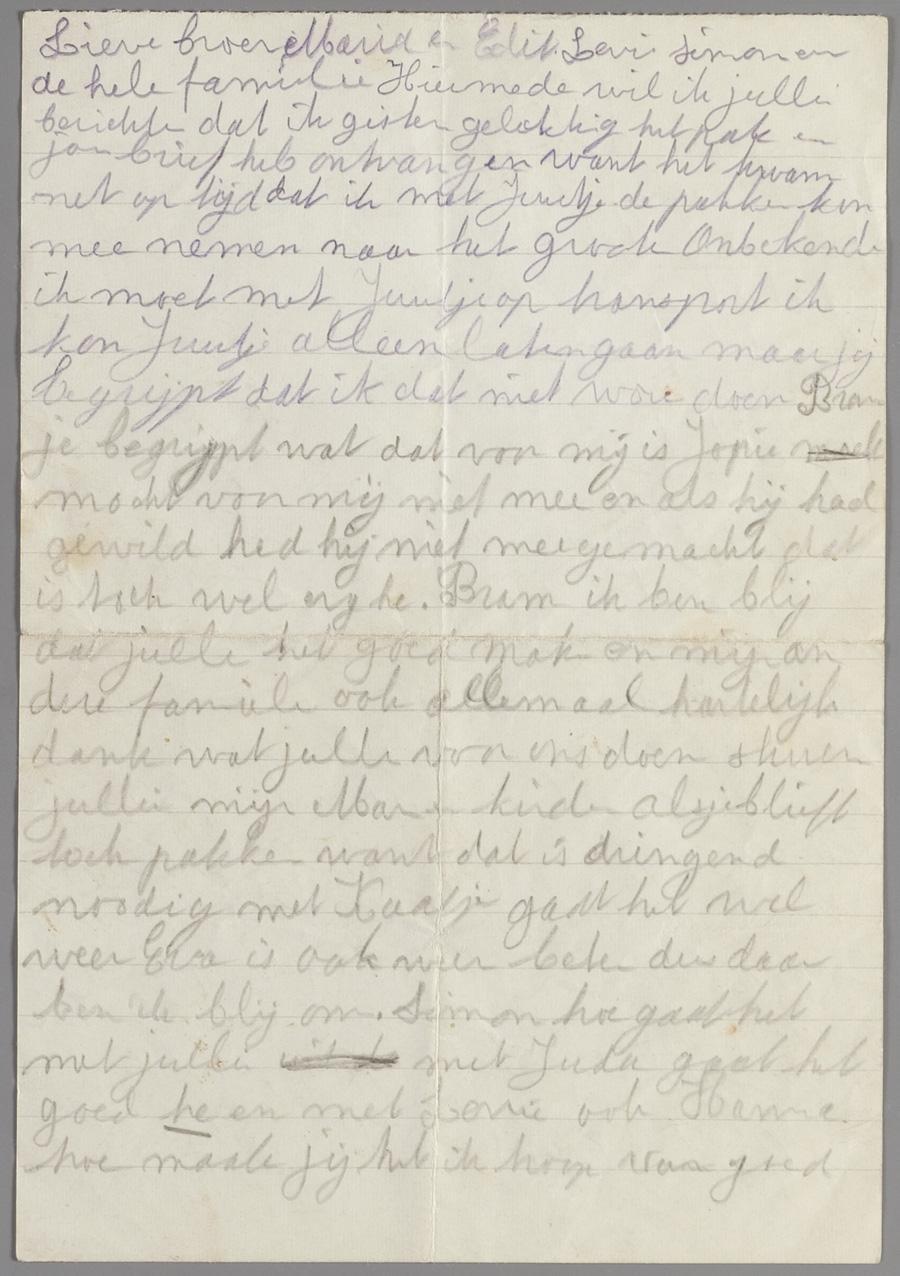 Lieve broer Marid en Edit. Levi simon en
de hele familie Hiermede wil ik julli
berichte dat ik gister gelukkig het pak en
jou brief heb ontvangen want het kwam
net op tijd dat ik met Juutje de pakke kon
mee nemen naar het groote Onbekende
ik moet met Juutje op transport ik
kon Juutje alleen laten gaan maar jij
begrijpt dat ik dat niet wou doen Bram
je begrijpt wat dat voor mij is Jopie
mocht voor mij niet mee en als hij had
gewild had hij niet meegemacht dat
is toch wel erg he. Bram ik ben blij
dat julle het goed mak en mijn an
dere familie ook allemaal hartelijk
dank wat julle voor ons doen sturen
jullie mijn Man en kinder alsjeblieft
toch pakke want dat is dringend
noodig met Kaatje gaat het wel
weer Eva is ook weer beter dus daar
ben ik blij om. Simon hoe gaat het
met julli met Juda gaat het
goed he en met ook Hannie.
hoe maak jij het ik hoop van goed